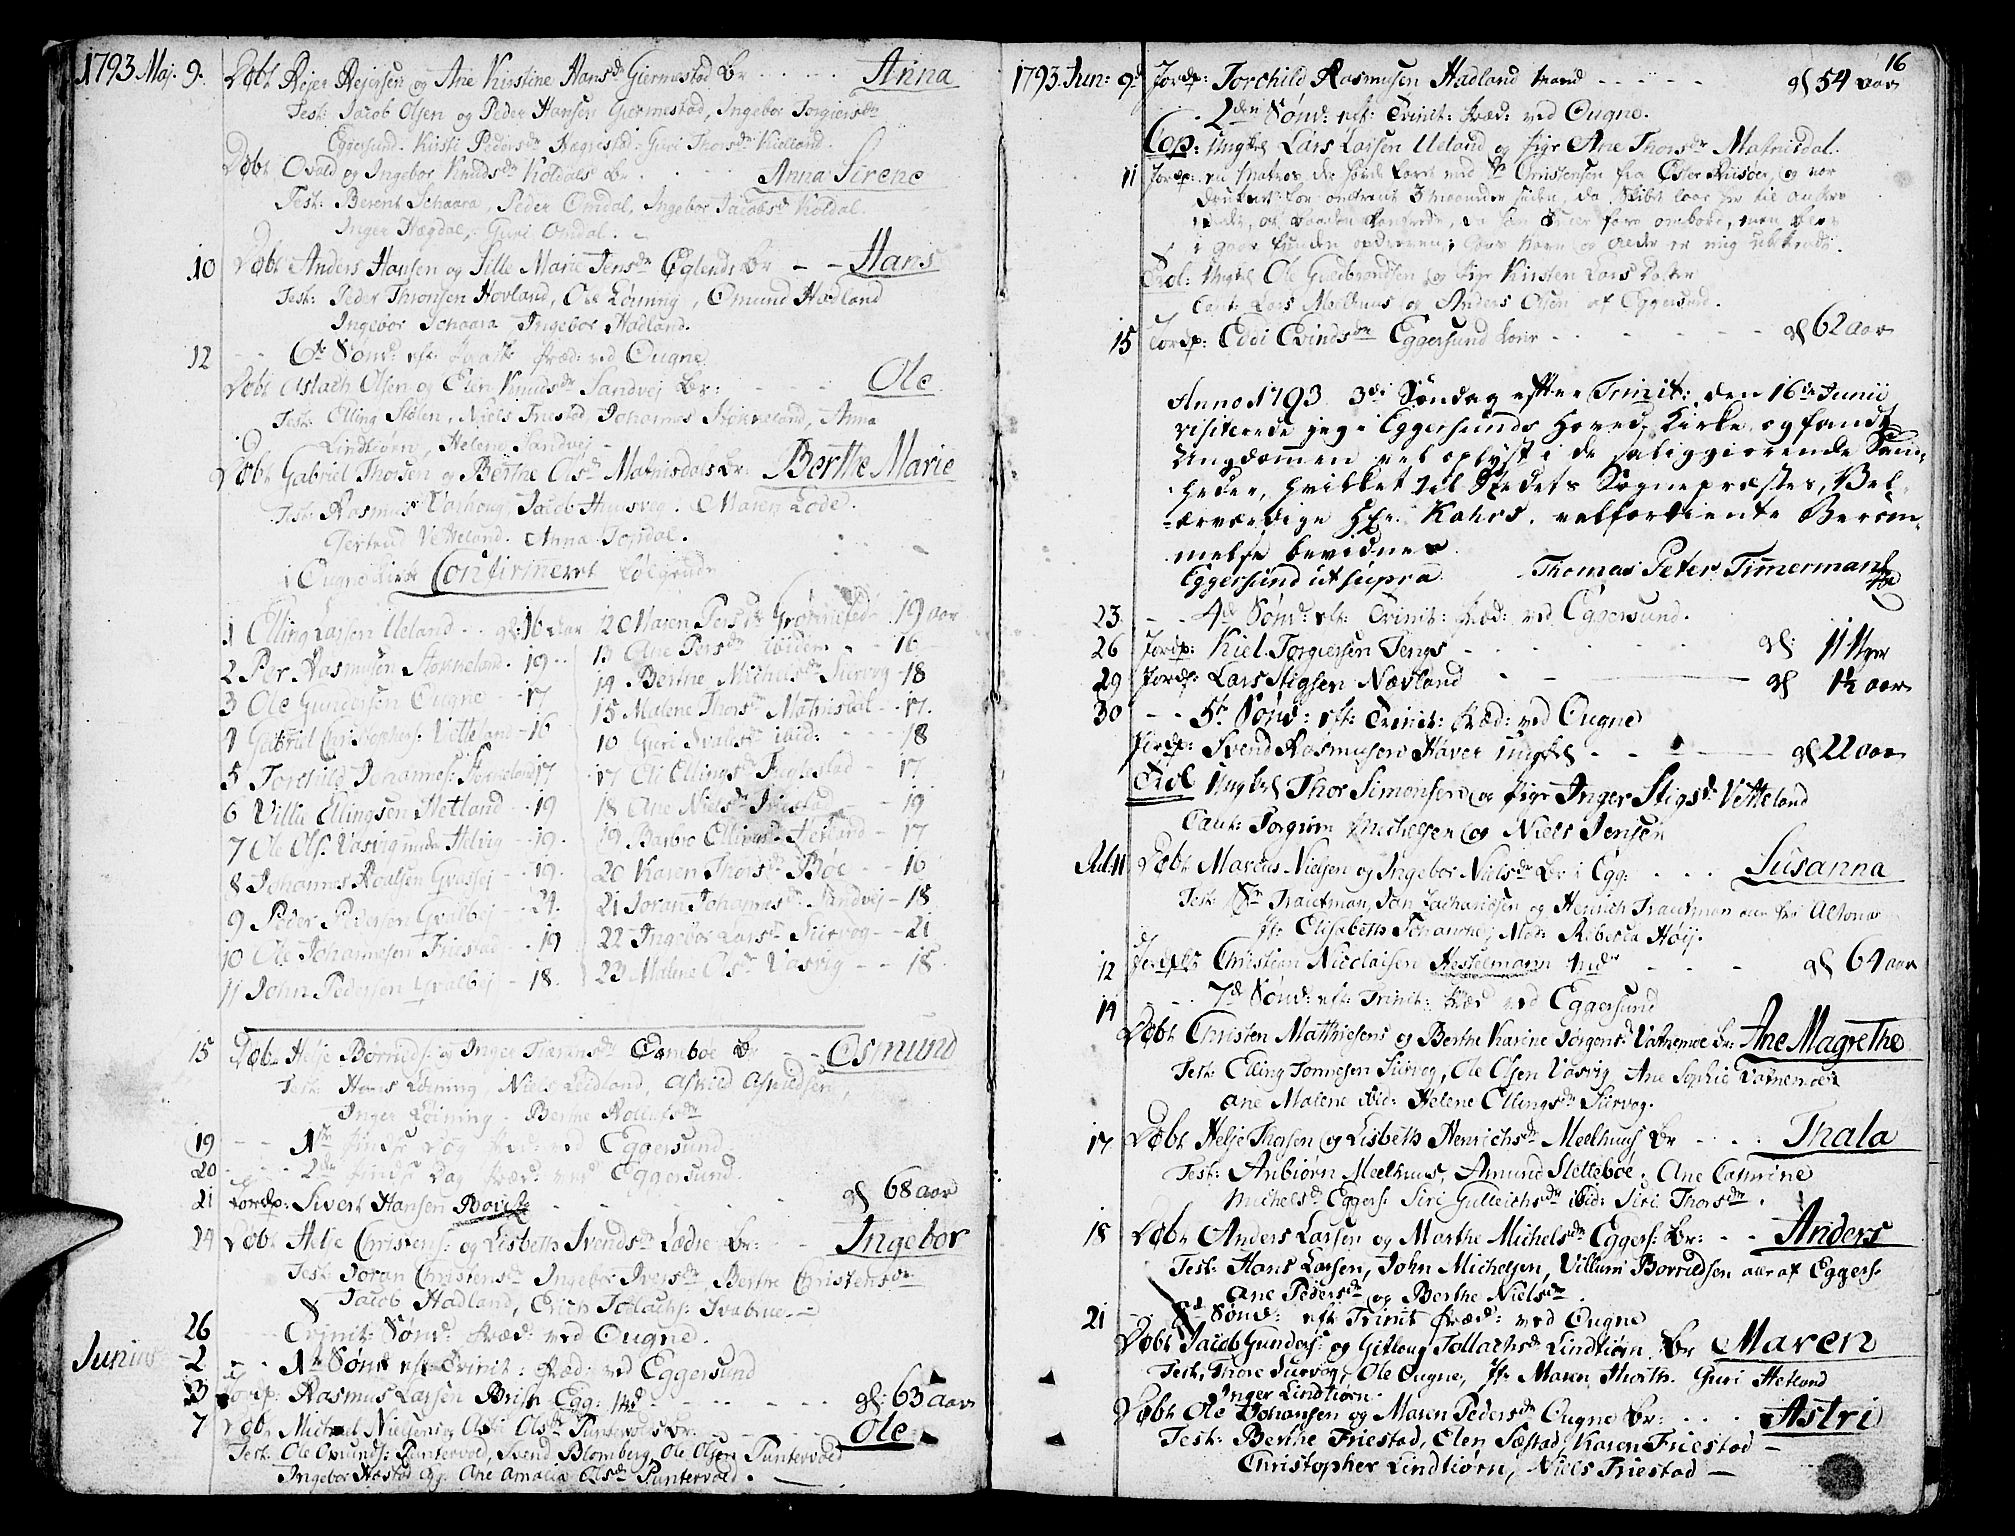 1793 Maj. 9. Døbt Rejer Rejersen og Ane Kirstine Hans dr Giermestad Br. Anna
Test: Jacob Olsen og Peder Hansen Giermestad, Ingebor Torgiers dr
Eggersund. Kirsti Peders dr Hægrestad. Guri Thors dr Kielland.
Døbt Osald og Ingebor Knuds dr Koldals Br. Anna Sirene
Test: Berent Schaara, Peder Omdal, Ingebor Jacobs dr Koldal.
Inger Hægdal, Guri Omdal.
10 Døbt Anders Hansen og Sille Marie Jens dr Eglends Br Hans
Test: Peder Thronsen Hovland, Ole Løining, Omund Hadland
Ingebor Schaara, Ingebor Hadland.
12 6te Sønd: eft: Paask: præd: ved Ougne
Døbt Aslach Olsen og Elen Knuds dr Sandvej Br: Ole
Test: Elling Stølen, Niels Friestad Johannes Støkeland, Anna
Lindtiørn, Helene Sandvej
Døbt Gabriel Thorsen og Berthe Ols dr Matnisdals Br: Berthe Marie
Test: Rasmus Varhoug, Jacob Hausveg. Maren Lode.
Giertrud Vetteland. Anna Jossdal.
i Ougne Kirke Confirmeret følgende
1 Elling Larsen Ueland gl: 16 aar
2 Per Rasmusen Stønneland. 19
3 Ole Gundersen Ougne 17
4 Gabriel Christophers: Vetteland 16
5 Torchild Johannes: Stønneland 17
6 Villu Ellingsen Hetland 19
7 Ole Ols: Vasvig 19.
8 Johannes Roalsen 19.
9 Peder Pedersen Qvalbej 24.
10 Ole Johannesen Friestad 19
11 John Pedersen Qvalbej 18.
12 Maren Pers dr 19 aar
13 Ane Pers dr ibidem 16
14 Berthe Michels dr Siurvog 18
15 Malene Thors dr Matnisdal 17.
16 Guri Ivals dr ibid: 18
17 Eli Ellings dr Fuglestad 17
18 Ane Niels dr Friestad 19
19 Barbro Ellings dr Hetland 17
20 Karen Thors dr Bøe 16
21 Joran Johannes dr Sandvej 18
22 Ingebor Lars dr Siurvog 21
23 Malene Ols dr Vasvig 18.
15 Døbt Helje Børrilds: og Inger Tiærans dr Eomboe Br Osmund
Test: Hans Løining, Niels Leidland, Askild Askildsen,
Inger Løining. Berthe Rollufs dr
19 1ste Pindse Dag præd: ved Eggersund
20 2den Pindse Dag præd: ved Eggersund.
21 Jordp: Sivert Hansen gl 68 aar
24 Døbt Helje Christens: og Lisbeth Svends dr Lædre Br: Ingebor
Test: Joran Christens dr Ingebor Ivers dr, Berthe Christens dr
Jacob Hadland, Erich Tollachs:
26 Trinit: Sønd: Præd: ved Ougne.
Junius 2 1te Sønd eft Trinit: Præd: ved Eggersund
3 Jordp: Rasmus Larsen Egg: gl: 63 aar
7 Døbt Michael Nielsen og Osti Ols dr Puntervolds Br. Ole
Test: Ole Omunds: Puntervold, Svend Blomberg, Ole Olsen Puntervold
Ingebor Hæstad og Ane Amalia Ols dr Puntervold.
16
1793 Jun: 9d Jordp: Torchild Rasmusen Hadland Mand gl 54 aar
2den Sønd: eft: Trinit: Præd: ved Ougne.
Cop: Ungkl Lars Larsen Ueland og Pige Ane Thors dr Matnisdal.
11 Jordp: en Matros, der havde faret med Sr Ornstensen fra Øster Riisøer, og var
druknet for omtrent 3 maaneder siden, da Skibet laae her til ankers
i gaar funden opdreven; hans Navn og alder er mig ubekiendt.
Trol: Ungkl Ole Gudbrandsen og Pige Kirsten Lars Datter
Caut: Lars Melhuus og Anders Olsen af Eggersund.
15 Jordp: Eddi Evinds dr Eggersund Kone gl 62 aar
Anno 1793 3die Søndag efter Trinit: den 16de Junii
visiterede jeg i Eggersunds Hoved-Kirke, og fandt
Ungdommen vel oplyst i de saliggiørende Sand-
heder, hvilket til Stedets Sognepræstes, Vel-
ærværdige Hr: Kahrs, velfortiente Berøm-
melse bevidnes
Eggersund ut supra. Thomas Peter Timermann
23. 4de Sønd: eft: Trinit: Præd: ved Eggersund.
26 Jordp: Kiel Torgiersen Tengs gl: 11 Uger
29 Jordp: Lars Stigsen Nævland gl 1½ aar
30 5te Sønd: eft: Trinit: Præd: ved Ougne
Jordp: Svend Rasmusen Haver Ungkl gl 22 aar
Trol Ungkl Thor Simonsen og Pige Inger Stigs dr Vetteland
Caut: Torgrim Michelsen og Niels Jensen
Jul: 11 Døbt Marcus Nielsen og Ingebor Niels dr Br i Egg: Susanna
Test: Sr Trautman, Jan Zachariesen og Henrich Trautman alle fra Altona
Jf: Elisabeth Schanche, Mad: Rebecca Høij.
12 Jordp: Christian Nicolaisen Hestelmann gl 64 aar
14 7de Sønd: eft: Trinit: Præd ved Eggersund
Døbt Christen Mathiesens og Berthe Karine Jørgens dr Vatnemoe Br: Ane Magrethe
Test: Elling Tønnesen Siurvog, Ole Olsen Vasvig Ane Sophie Vatnemoe
Ane Malene ibid: Helene Ellings dr Siurvog.
17 Døbt Helje Thorsen og Lisbeth Henrichs dr Meelhuus Br Thala
Test: Anbiørn Meelhuus, Amund Sletteboe, Ane Cathrine
Michels dr Eggers: Siri Gulleichs dr ibid: Siri Thors dr.
18 Døbt Anders Larsen og Marthe Michels dr Eggers: Br: Anders
Test: Hans Larsen, John Michelsen, Villum Borrildsen alle af Eggers:
Ane Peders dr og Berthe Niels dr.
21 8de Sønd: eft Trinit Præd: ved Ougne
Døbt Jacob Gunders: og Gitloug Tollachs dr Lindtiørn Br Maren
Test: Thore Survog, Ole Ougne, Jf: Maren Thorth. Guri Hetland
Inger Lindtiørn.
Døbt Ole Johansen og Maren Peders dr Ougne Br: Astri
Test: Berthe Friestad, Elen Sæstad, Karen Friestad
Christopher Lindtiørn, Niels Friestad